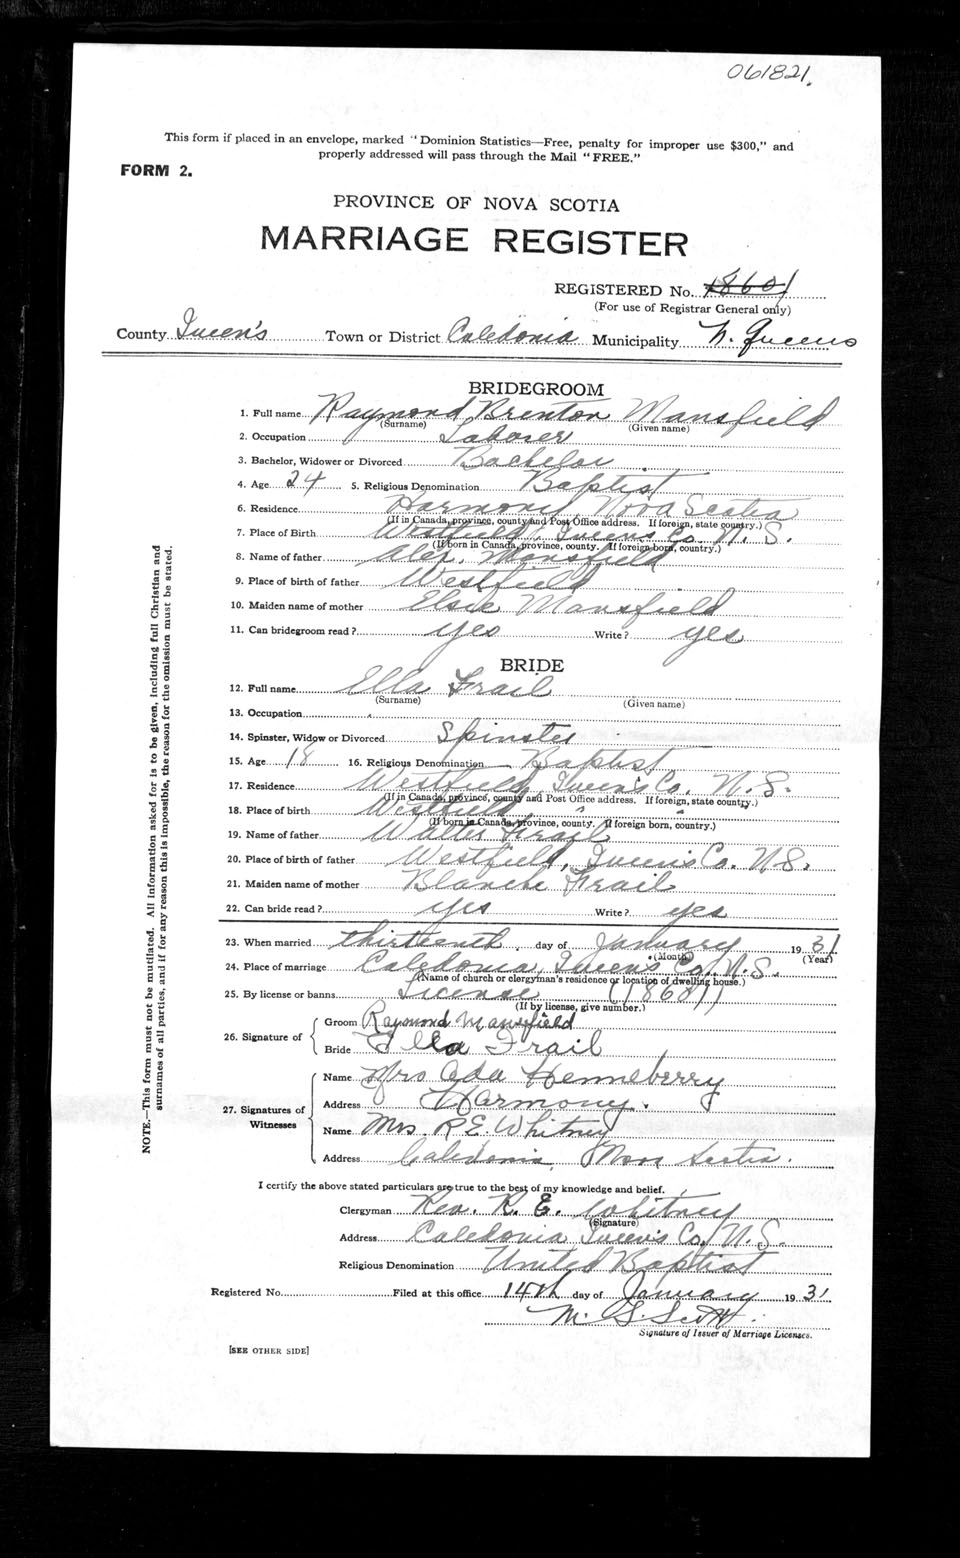 061821.
This form if placed in an envelope, marked "Dominion Statistics—Free, penalty for improper use $300," and
properly addressed will pass through the Mail "FREE."
FORM 2.
PROVINCE OF NOVA SCOTIA
MARRIAGE REGISTER
REGISTERED No. 18601
(For use of Registrar General only)
County Queen's Town or District Caledonia Municipality N. Queens
BRIDEGROOM
1. Full name Raymond Brenton Mansfield
(Surname) (Given name)
2. Occupation Laborer
3. Bachelor, Widower or Divorced Bachelor
4. Age 24 5. Religious Denomination Baptist
6. Residence Harmony, Nova Scotia
(If in Canada, province, county and Post Office address. If foreign, state country.)
7. Place of Birth Westfield, Queens Co. N. S.
(If born in Canada, province, county. If foreign born, country.)
8. Name of father Alex. Mansfield
9. Place of birth of father Westfield
10. Maiden name of mother Elsie Mansfield
11. Can bridegroom read? yes Write? yes
BRIDE
12. Full name Ella Frail
(Surname) (Given name)
13. Occupation
14. Spinster, Widow or Divorced Spinster
15. Age 18 16. Religious Denomination Baptist
17. Residence Westfield, Queen's Co. N.S.
(If in Canada, province, county and Post Office address. If foreign, state country.)
18. Place of birth Westfield
(If born in Canada, province, county. If foreign born, country.)
19. Name of father Walter Frail
20. Place of birth of father Westfield, Queen's Co. N.S.
21. Maiden name of mother Blanche Frail
22. Can bride read? yes Write? yes
23. When married thirteenth day of January 1931
(Month) (Year)
24. Place of marriage Caledonia, Queen's Co. N.S.
(Name of church or clergyman's residence or location of dwelling house.)
25. By license or banns License (18601)
(If by license, give number.)
26. Signature of Groom Raymond Mansfield
Bride Ella Frail
27. Signatures of Witnesses
Name Mrs Ada Henneberry
Address Harmony.
Name Mrs. R.E. Whitney
Address Caledonia, Nova Scotia.
I certify the above stated particulars are true to the best of my knowledge and belief.
Clergyman Rev. R. E. Whitney
(Signature)
Address Caledonia Queen's Co. N.S.
Religious Denomination United Baptist
Registered No. Filed at this office 14th day of January 1931
M. S. Scott
Signature of Issuer of Marriage Licenses.
[SEE OTHER SIDE]
NOTE.—This form must not be mutilated. All information asked for is to be given, including full Christian and
surnames of all parties, and if for any reason this is impossible, the reason for the omission must be stated.